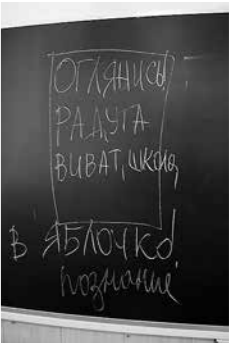 ОГЛЯНИСЬ
РАДУГА
ВИВАТ, ШКОЛА
В ЯБЛОЧКО!
познание